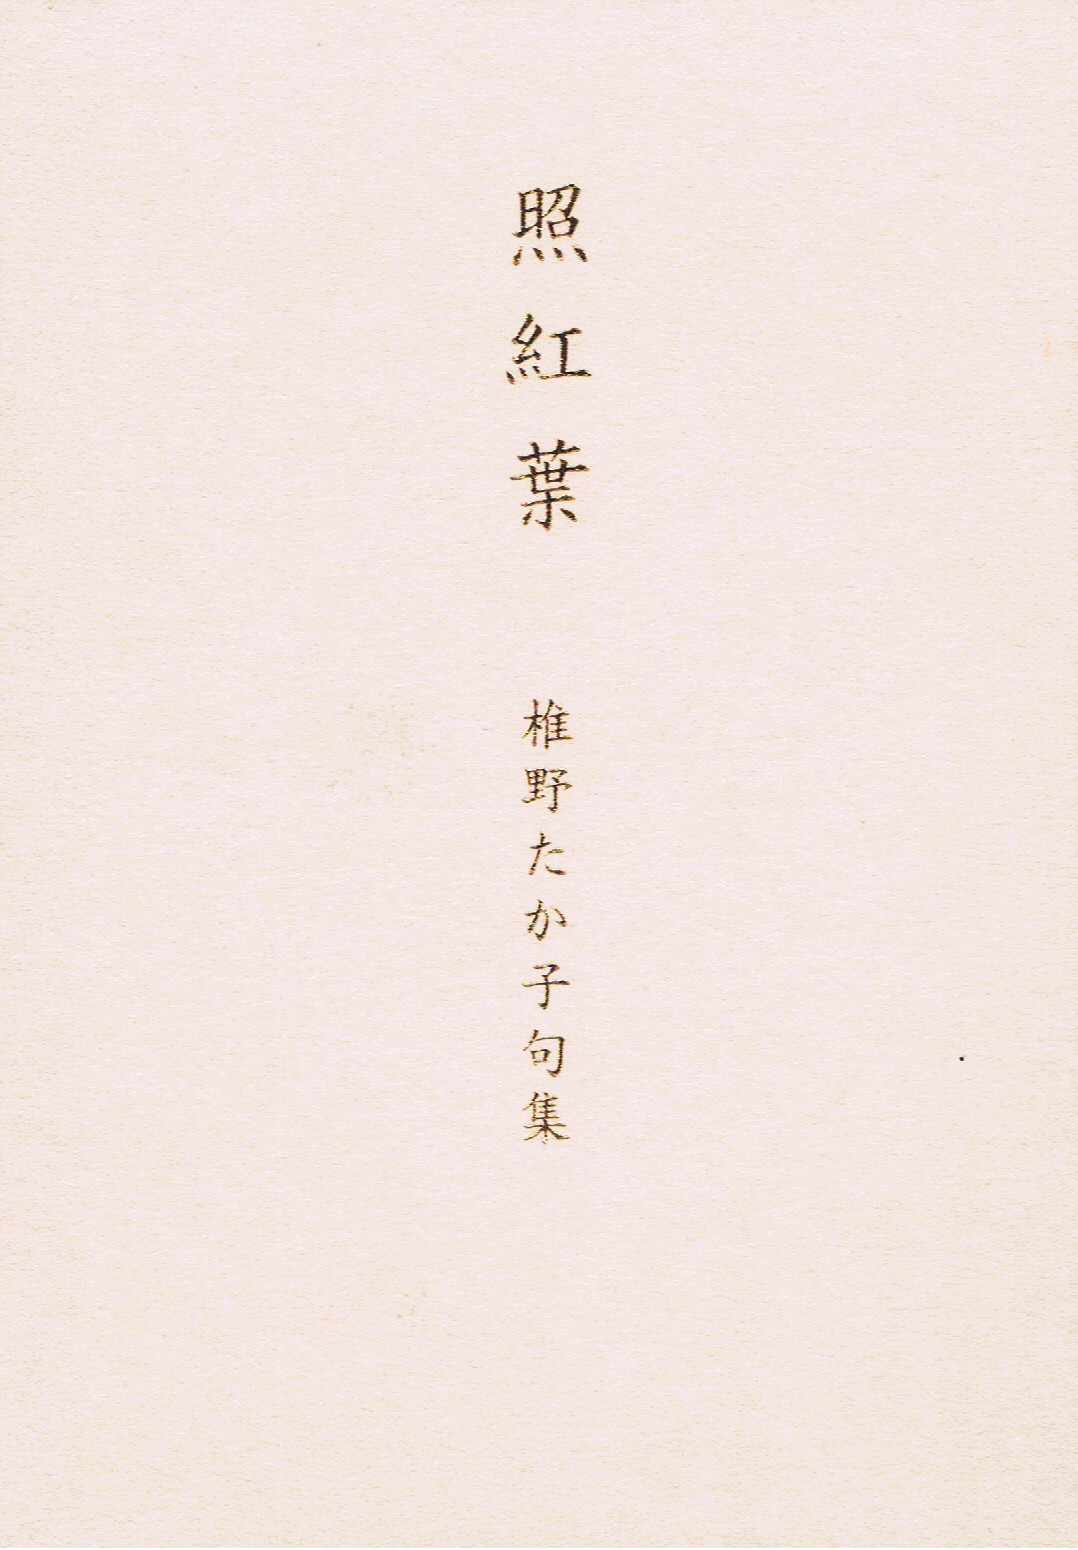 照紅葉
椎野たか子句集